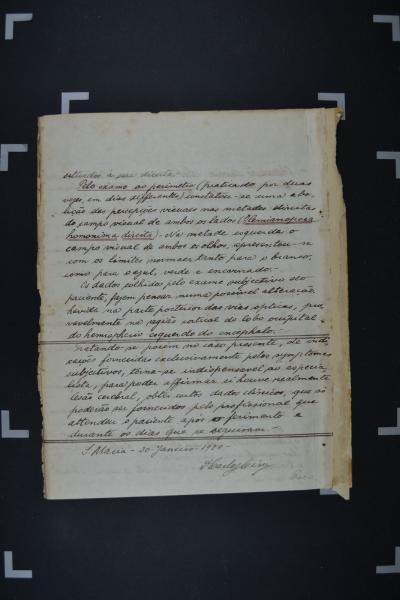 situados á sua direita.
Pelo exame ao perimetro (praticado por duas
vezes, em dias differentes) constatou-se uma abo-
lição das percepções visuaes nas metades direitas
do campo visual de ambos os lados (Hemianopsia
homonima direita). Na metade esquerda o
campo visual de ambos os olhos, apresentou-se
com os limites normaes tanto para o branco,
como para o azul, verde e encarnado.-
Os dados colhidos pelo exame subjectivo do
paciente, fazem pensar numa possivel alteração
havida na parte posterior das vias opticas, pro-
vavelmente na região cortical do lobo occipital
do hemispherio esquerdo do encephalo.-
Tratando-se porem no caso presente, de indi-
cações fornecidas exclusivamente pelos symptomas
subjectivos, torna-se indispensavel ao especia-
lista, para poder affirmar si houve realmente
lesão cerebral, obter certos dados clinicos, que só
poderão ser fornecidos pelo profissional que
attendeu o paciente após o ferimento e
durante os dias que se seguiram.-
S. Maria - 30 - Janeiro - 1930.-